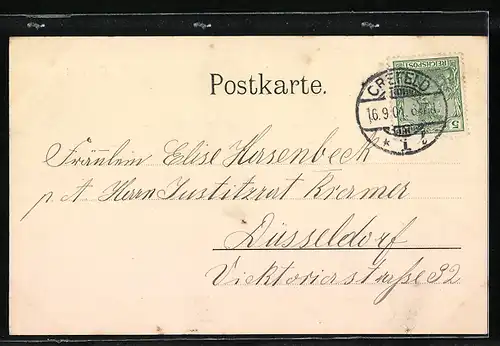 Postkarte.
REICHSPOST
5
CREFELD
16.9.01.
* 1 i
Fräulein Elise Hasenbeck
p. A. Herrn Justitzrat Kramer
Düsseldorf
Vicktoriastraße 92